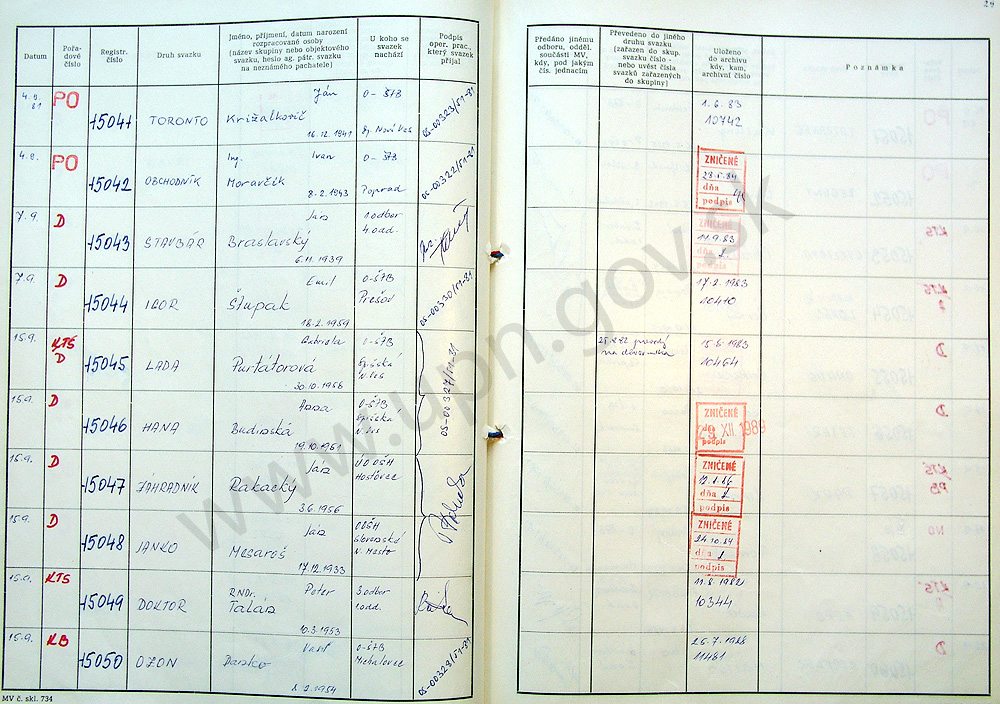 24
Datum
Pořa-
dové
číslo
Registr.
číslo
Druh svazku
Jméno, příjmení, datum narození
rozpracované osoby
(název skupiny nebo objektového
svazku, heslo ag. pátr. svazku
na neznámého pachatele)
U koho se
svazek
nachází
Podpis
oper. prac.,
který svazek
přijal
Předáno jinému
odboru, odděl.
součásti MV,
kdy, pod jakým
čís. jednacím
Převedeno do jiného
druhu svazku
(zařazen do skup.
svazku číslo -
nebo uvést čísla
svazků zařazených
do skupiny)
Uloženo
do archivu
kdy, kam,
archivní číslo
Poznámka
4.9.
81
PO
15041
TORONTO
Ján
Križalkovič
16.12.1941
O-ŠTB
Sp. Nová Ves
OS-00323/51-81
1.6.83
10742
4.9.
PO
15042
OBCHODNÍK
Ing. Ivan
Moravčík
8.2.1943
O-ŠTB
Poprad
OS-00322/51-81
ZNIČENÉ
dňa
podpis
7.9.
D
15043
STAVBÁR
Ján
Braslavský
6.11.1939
1.odbor
4.odd.
ZNIČENÉ
11.9.83
dňa
podpis
7.9.
D
15044
IGOR
Emil
Štupak
18.2.1959
O-ŠTB
Prešov
OS-00330/51-81
17.2.1983
10410
15.9.
KTS
D
15045
LADA
Gabriela
Purtátorová
30.10.1956
O-ŠTB
Spišská
N.Ves
OS-00327/51-81
15.5.1983
10464
15.9.
D
15046
HANA
Anna
Budinská
19.10.1951
O-ŠTB
Spišská
N.Ves
ZNIČENÉ
dňa
XII. 1989
podpis
15.9.
D
15047
ZÁHRADNIK
Ján
Rakacky
3.6.1956
OOŠH
Hosťovce
ZNIČENÉ
dňa
podpis
15.9.
D
15048
JANKO
Ján
Mesaroš
17.12.1933
OOŠH
Slovenské
N. Mesto
ZNIČENÉ
24.10.84
dňa
podpis
15.9.
KTS
15049
DOKTOR
RNDr. Peter
Taláz
10.3.1953
3.odbor
1.odd.
11.8.1982
10344
15.9.
KB
15050
OZON
Danko
8.2.1954
O-ŠTB
Michalovce
OS-00329/51-81
26.7.1988
11481
MV č. skl. 734
www.upn.gov.sk